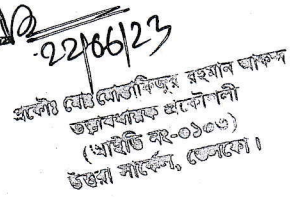 22/06/23
প্রকৌঃ মোঃ মোস্তাফিজুর রহমান আকন্দ
তত্ত্বাবধায়ক প্রকৌশলী
(আইডি নং-০১০৩)
উত্তরা সার্কেল, ডেসকো।